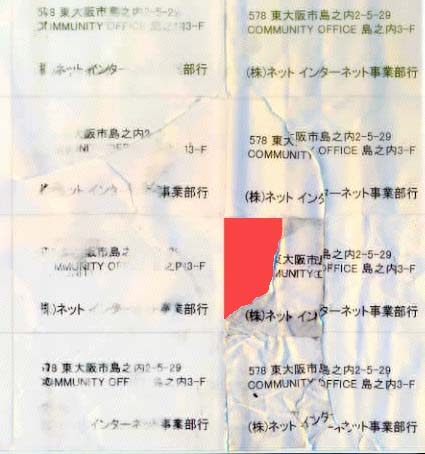 578 東大阪市島之内2-5-29
COMMUNITY OFFICE 島之内3-F
ネット インター 部行
578 東大阪市島之内2-5-29
COMMUNITY OFFICE 島之内3-F
(株)ネット インターネット事業部行
大阪市島之内2
13-F
ネット イン 事業部行
578 東大阪市島之内2-5-29
COMMUNITY OFFICE 島之内3-F
(株)ネット インターネット事業部行
大阪市島之内2-5-29
MMUNITY OF 島之内3-F
ネット インターネット事業部行
東大阪市島之内2-5-29
MUNITY OFFICE 島之内3-F
(株)ネット インターネット事業部行
78 東大阪市島之内2-5-29
MMUNITY OFF 島之内3-F
インターネット事業部行
578 東大阪市島之内2-5-29
COMMUNITY OFFICE 島之内3-F
(株)ネット インターネット事業部行